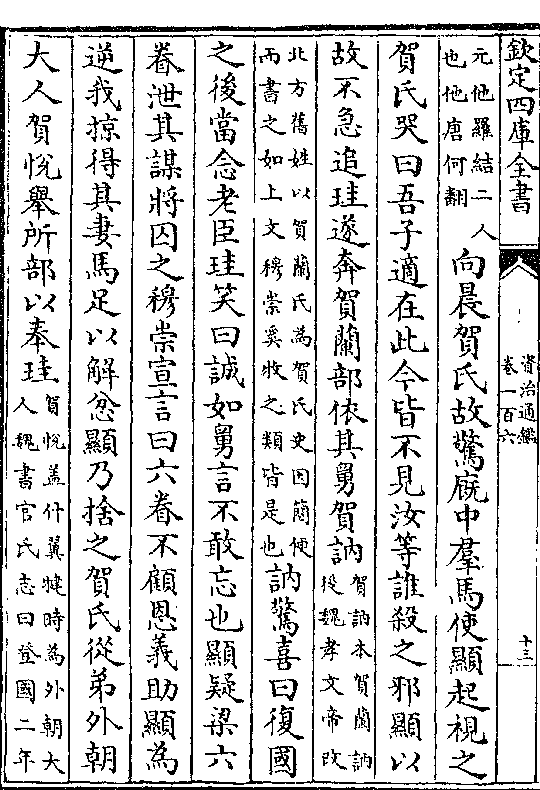 欽定四庫全書
資治通鑑
卷一百六
十三
元他羅結二人
也他唐何翻
向晨賀氏故驚廐中羣馬使顯起視之
賀氏哭曰吾子適在此今皆不見汝等誰殺之邪顯以
故不急追珪遂奔賀蘭部依其舅賀訥
賀訥本賀蘭訥
後魏孝文帝改
北方舊姓以賀蘭氏為賀氏史因簡便
而書之如上文穆崇奚牧之類皆是也
訥驚喜曰復國
之後當念老臣珪笑曰誠如舅言不敢忘也顯疑梁六
眷泄其謀將囚之穆崇宣言曰六眷不顧恩義助顯為
逆我掠得其妻馬足以解忿顯乃捨之賀氏從弟外朝
大人賀悅舉所部以奉珪
賀悅盖什翼犍時為外朝大
人魏書官氏志曰登國二年